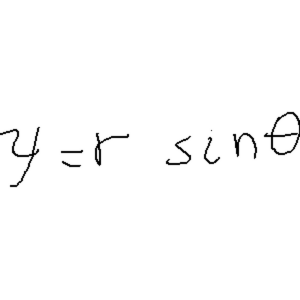 y = r sinθ